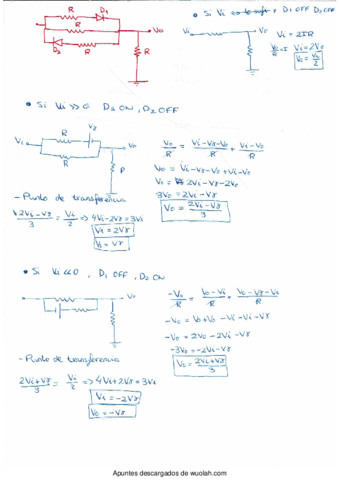 R D1
R Vo
R
D2 R
• Si Vi D1 OFF D2 OFF
Vi Vo
R
Vi = 2IR
Vo/R = I Vi = 2Vo
Vo = Vi/2
• Si Vi >> 0 D1 ON, D2 OFF
Vγ
Vi R Vo
R
R
Vo/R = (Vi-Vγ-Vo)/R + (Vi-Vo)/R
Vo = Vi-Vγ-Vo+Vi-Vo
Vo = 2Vi-Vγ-2Vo
3Vo = 2Vi-Vγ
Vo = (2Vi-Vγ)/3
- Punto de transferencia
(2Vi-Vγ)/3 = Vi/2 => 4Vi-2Vγ = 3Vi
Vi = 2Vγ
Vo = Vγ
• Si Vi << 0 , D1 OFF, D2 ON
Vo
-Vo/R = (Vo-Vi)/R + (Vo-Vγ-Vi)/R
-Vo = Vo+Vo-Vi-Vi-Vγ
-Vo = 2Vo-2Vi-Vγ
-3Vo = -2Vi-Vγ
Vo = (2Vi+Vγ)/3
- Punto de transferencia
(2Vi+Vγ)/3 = Vi/2 => 4Vi+2Vγ = 3Vi
Vi = -2Vγ
Vo = -Vγ
Apuntes descargados de wuolah.com